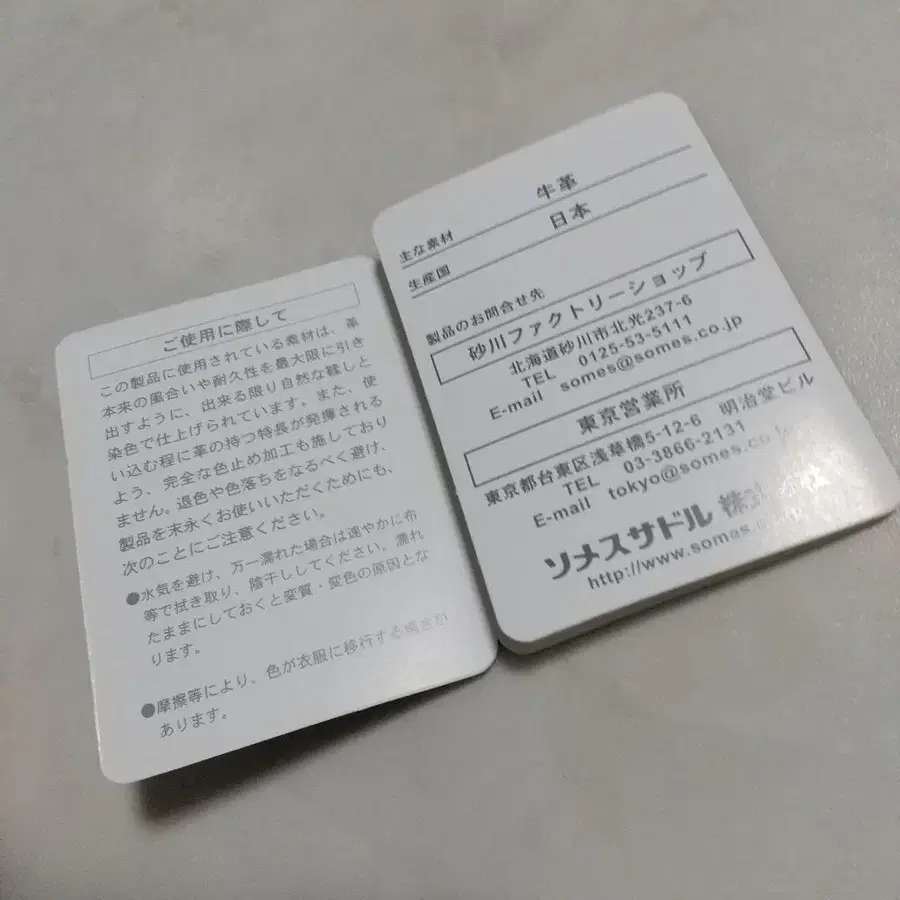 ご使用に際して
この製品に使用されている素材は、革
本来の風合いや耐久性を最大限に引き
出すように、出来る限り自然な鞣しと
染色で仕上げられています。また、使
い込む程に革の持つ特長が発揮される
よう、完全な色止め加工も施しており
ません。退色や色落ちをなるべく避け、
製品を末永くお使いいただくためにも、
次のことにご注意ください。
●水気を避け、万一濡れた場合は速やかに布
等で拭き取り、陰干ししてください。濡れ
たままにしておくと変質・変色の原因とな
ります。
●摩擦等により、色が衣服に移行する
あります。
主な素材 牛革
生産国 日本
製品のお問合せ先
砂川ファクトリーショップ
北海道砂川市北光237-6
TEL 0125-53-5111
E-mail somes@somes.co.jp
東京営業所
東京都台東区浅草橋5-12-6 明治堂ビル
TEL 03-3866-2131
E-mail tokyo@somes.co.jp
ソメスサドル 株式
http://www.somes.